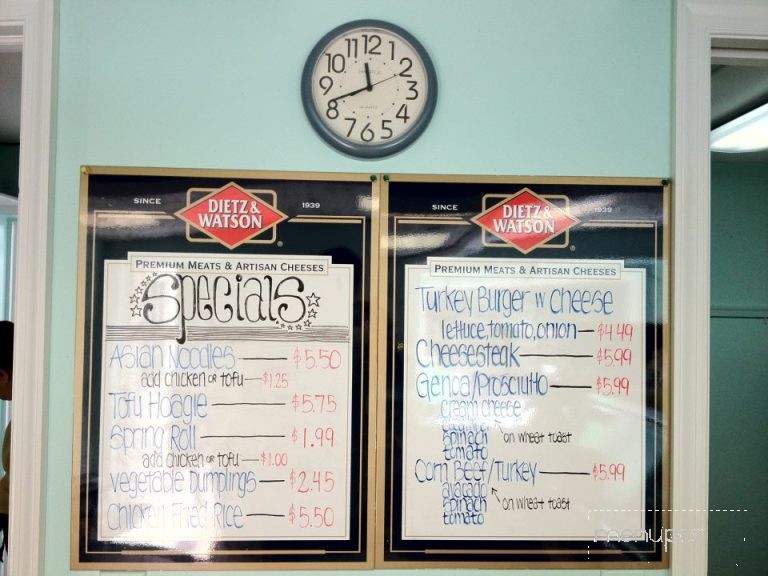 12
11
1
10
2
9
3
8
4
7
5
6
QUARTZ
SINCE DIETZ & WATSON 1939
PREMIUM MEATS & ARTISAN CHEESES
Specials
Asian Noodles — $5.50
add chicken or tofu — $1.25
Tofu Hoagie — $5.75
Spring Roll — $1.99
add chicken or tofu — $1.00
Vegetable Dumplings — $2.45
Chicken Fried Rice — $5.50
SINCE DIETZ & WATSON 1939
PREMIUM MEATS & ARTISAN CHEESES
Turkey Burger w cheese
lettuce, tomato, onion — $4.49
Cheesesteak — $5.99
Genoa/Prosciutto — $5.99
cream cheese
spinach on wheat toast
tomato
Corn Beef/Turkey — $5.99
avocado
spinach on wheat toast
tomato